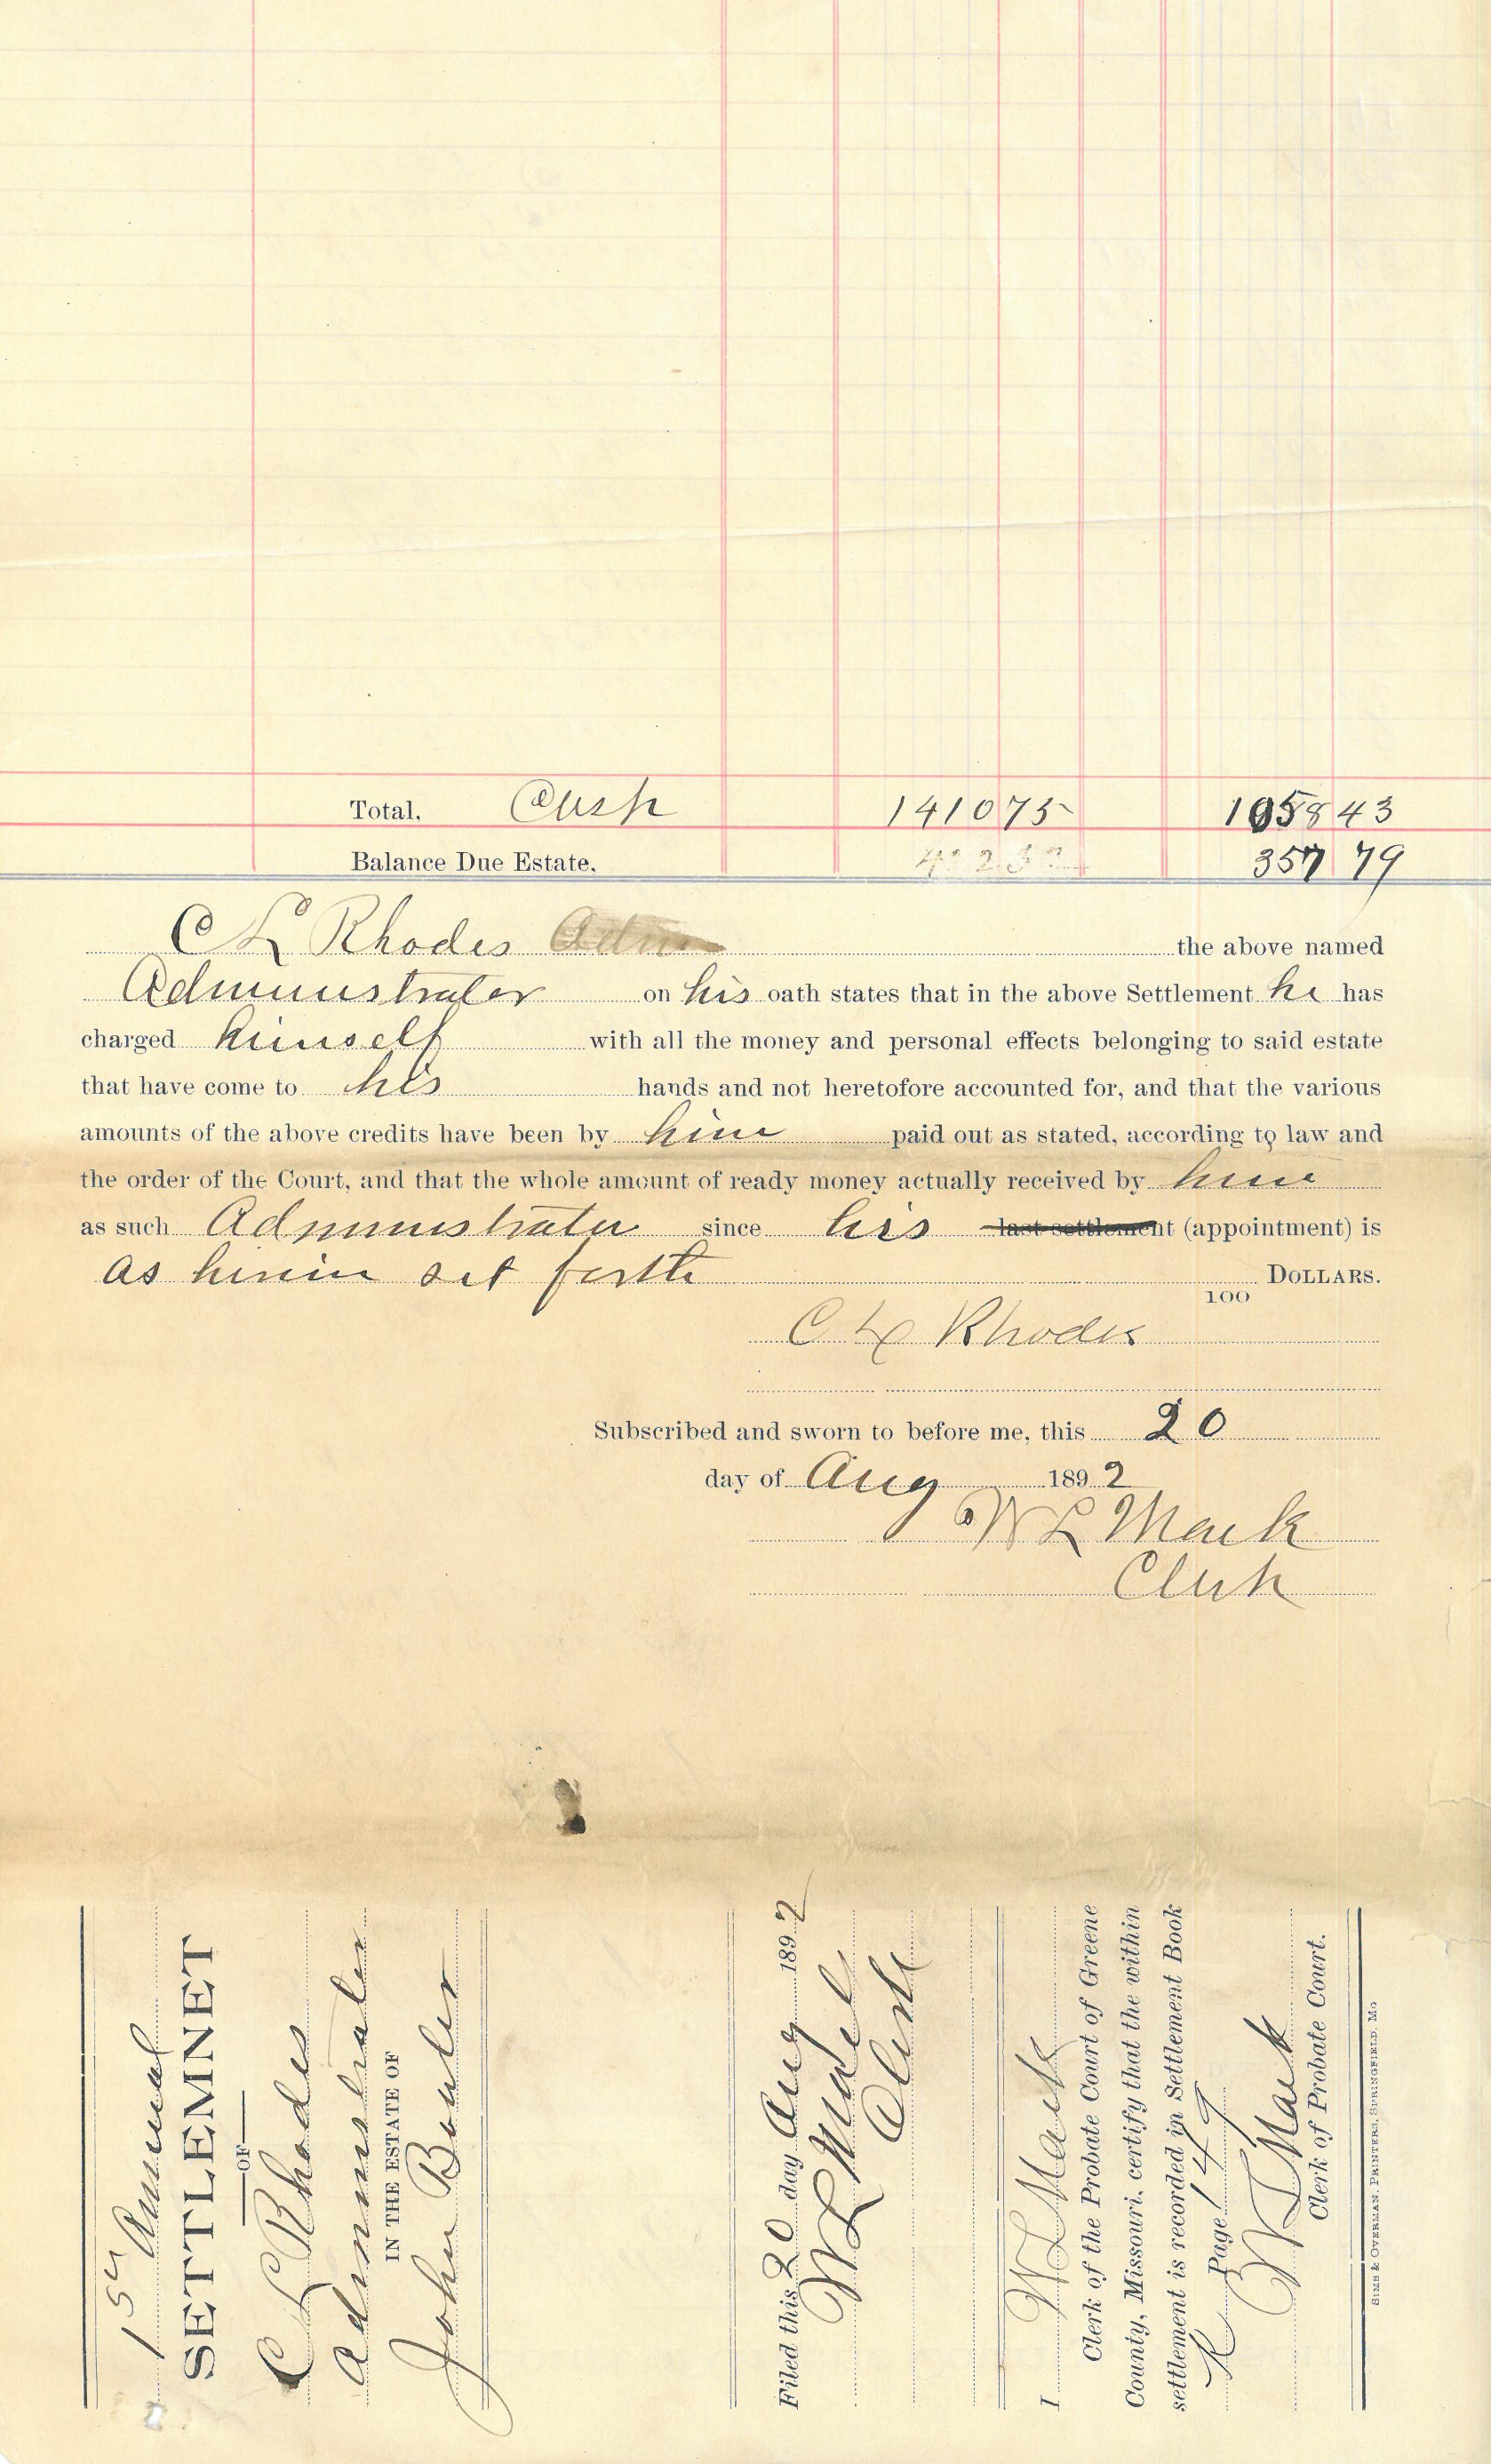 Total. Cash 1410 75 1058 43
Balance Due Estate. 357 79
C L Rhodes Adm the above named
Administrator on his oath states that in the above Settlement he has
charged himself with all the money and personal effects belonging to said estate
that have come to his hands and not heretofore accounted for, and that the various
amounts of the above credits have been by him paid out as stated, according to law and
the order of the Court, and that the whole amount of ready money actually received by him
as such Administrator since his last settlement (appointment) is
as herein set forth DOLLARS.
100
C L Rhodes
Subscribed and sworn to before me, this 20
day of Aug 1892
W L Mack
Clerk
1st Annual
SETTLEMNET
OF
C L Rhodes
Administrator
IN THE ESTATE OF
John Bowler
Filed this 20 day Aug 1892
W L Mack
Clerk
I W L Mack
Clerk of the Probate Court of Greene
County, Missouri, certify that the within
settlement is recorded in Settlement Book
K Page 149
W L Mack
Clerk of Probate Court.
SIMS & OVERMAN, PRINTERS, SPRINGFIELD, MO